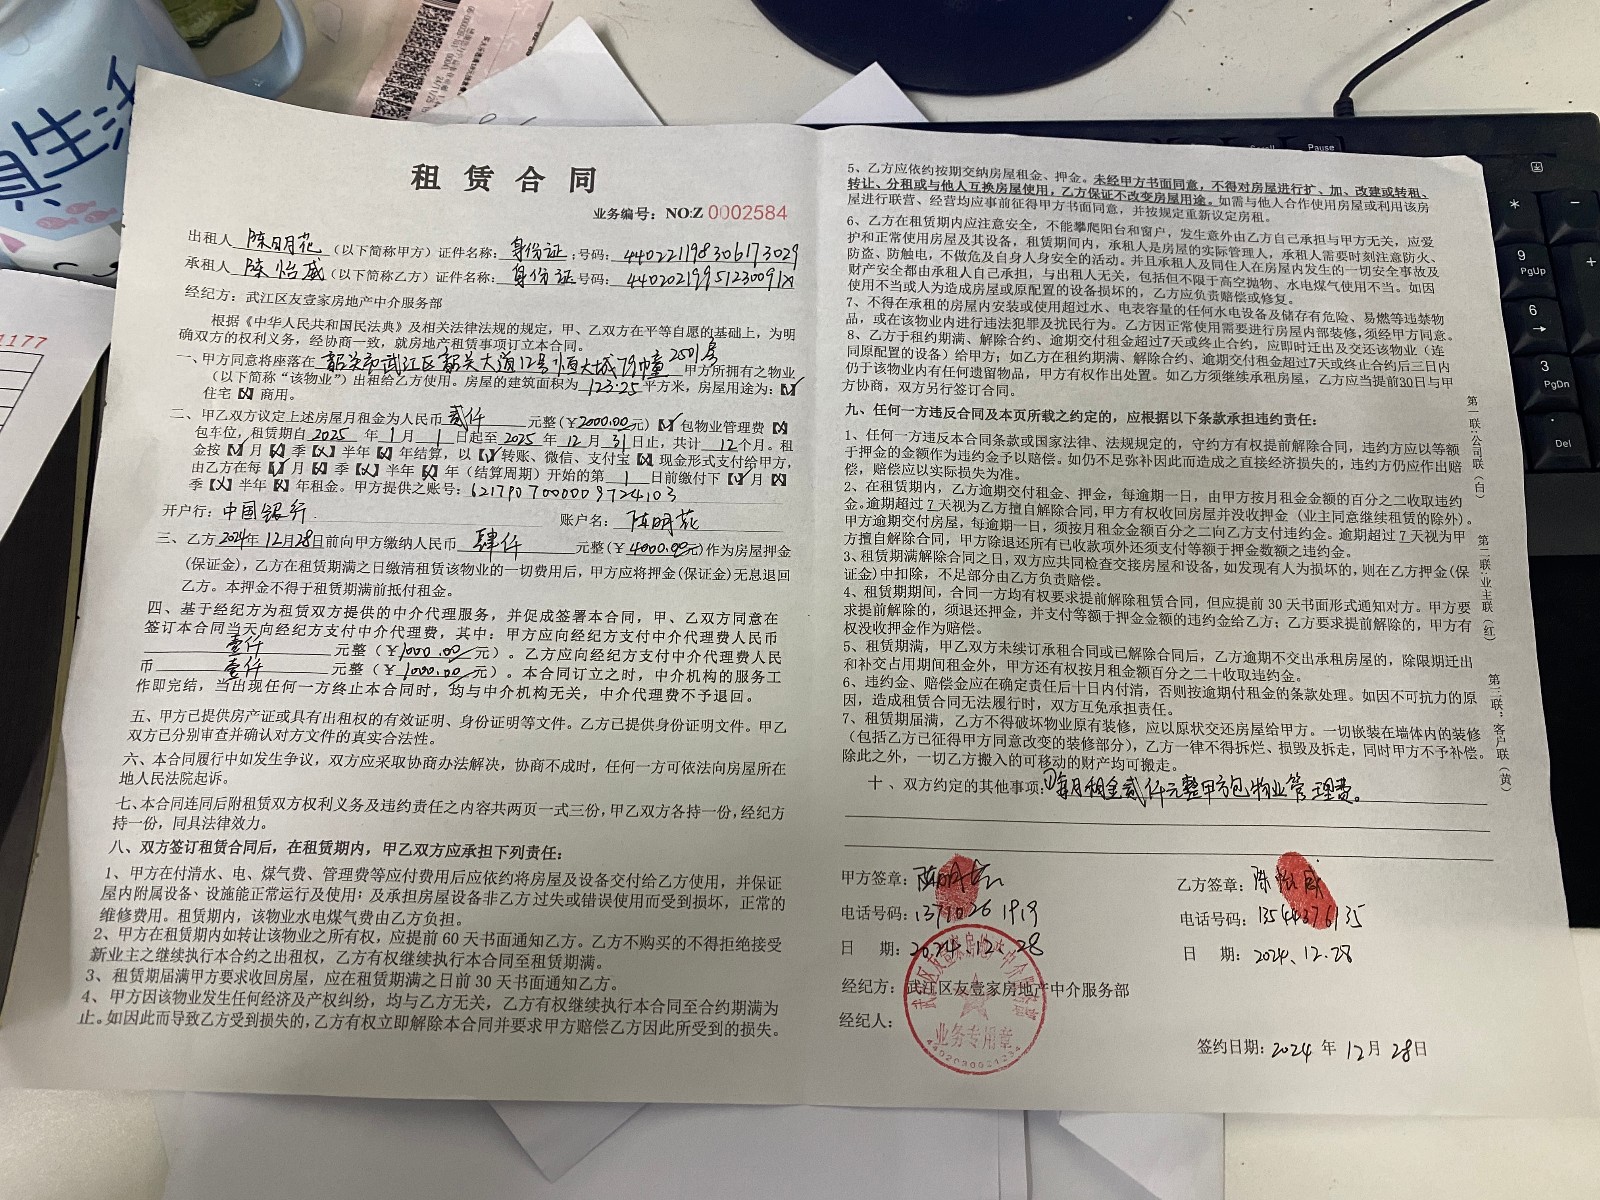 真生活
1177
租赁合同
业务编号：NO:Z 0002584
出租人 陈明花 （以下简称甲方）证件名称：身份证 ;号码：440221198306173029
承租人 陈怡威 （以下简称乙方）证件名称：身份证 号码：44020219951230091X
经纪方：武江区友壹家房地产中介服务部
根据《中华人民共和国民法典》及相关法律法规的规定，甲、乙双方在平等自愿的基础上，为明
确双方的权利义务，经协商一致，就房地产租赁事项订立本合同。
一、甲方同意将座落在 韶关市武江区韶关大道12号恒大城79幢2501号 甲方所拥有之物业
（以下简称“该物业”）出租给乙方使用。房屋的建筑面积为 123.25 平方米，房屋用途为：【✓】
住宅【✗】商用。
二、甲乙双方议定上述房屋月租金为人民币 贰仟 元整（￥2000.00元）【✓】包物业管理费【✗】
包车位，租赁期自 2025 年 1 月 1 日起至 2025 年 12 月 31 日止，共计 12 个月。租
金按【✓】月【✗】季【✗】半年【✗】年结算，以【✓】转账、微信、支付宝【✗】现金形式支付给甲方，
由乙方在每【✓】月【✗】季【✗】半年【✗】年（结算周期）开始的第 1 日前缴付下【✓】月【✗】
季【✗】半年【✗】年租金。甲方提供之账号：6217907000009724103
开户行：中国银行 账户名：陈明花
三、乙方 2024年12月28日前向甲方缴纳人民币 肆仟 元整（￥4000.00元)作为房屋押金
(保证金)，乙方在租赁期满之日缴清租赁该物业的一切费用后，甲方应将押金(保证金)无息退回
乙方。本押金不得于租赁期满前抵付租金。
四、基于经纪方为租赁双方提供的中介代理服务，并促成签署本合同，甲、乙双方同意在
签订本合同当天向经纪方支付中介代理费，其中：甲方应向经纪方支付中介代理费人民币
壹仟 元整（￥1000.00元）。乙方应向经纪方支付中介代理费人民
币 壹仟 元整（￥1000.00元）。本合同订立之时，中介机构的服务工
作即完结，当出现任何一方终止本合同时，均与中介机构无关，中介代理费不予退回。
五、甲方已提供房产证或具有出租权的有效证明、身份证明等文件。乙方已提供身份证明文件。甲乙
双方已分别审查并确认对方文件的真实合法性。
六、本合同履行中如发生争议，双方应采取协商办法解决，协商不成时，任何一方可依法向房屋所在
地人民法院起诉。
七、本合同连同后附租赁双方权利义务及违约责任之内容共两页一式三份，甲乙双方各持一份，经纪方
持一份，同具法律效力。
八、双方签订租赁合同后，在租赁期内，甲乙双方应承担下列责任：
1、甲方在付清水、电、煤气费、管理费等应付费用后应依约将房屋及设备交付给乙方使用，并保证
屋内附属设备、设施能正常运行及使用；及承担房屋设备非乙方过失或错误使用而受到损坏，正常的
维修费用。租赁期内，该物业水电煤气费由乙方负担。
2、甲方在租赁期内如转让该物业之所有权，应提前 60 天书面通知乙方。乙方不购买的不得拒绝接受
新业主之继续执行本合约之出租权，乙方有权继续执行本合同至租赁期满。
3、租赁期届满甲方要求收回房屋，应在租赁期满之日前 30 天书面通知乙方。
4、甲方因该物业发生任何经济及产权纠纷，均与乙方无关，乙方有权继续执行本合同至合约期满为
止。如因此而导致乙方受到损失的，乙方有权立即解除本合同并要求甲方赔偿乙方因此所受到的损失。
5、乙方应依约按期交纳房屋租金、押金。未经甲方书面同意，不得对房屋进行扩、加、改建或转租、
转让、分租或与他人互换房屋使用，乙方保证不改变房屋用途。如需与他人合作使用房屋或利用该房
屋进行联营、经营均应事前征得甲方书面同意，并按规定重新议定房租。
6、乙方在租赁期内应注意安全，不能攀爬阳台和窗户，发生意外由乙方自己承担与甲方无关，应爱
护和正常使用房屋及其设备，租赁期间内，承租人是房屋的实际管理人，承租人需要时刻注意防火、
防盗、防触电，不做危及自身人身安全的活动。并且承租人及同住人在房屋内发生的一切安全事故及
财产安全都由承租人自己承担，与出租人无关，包括但不限于高空抛物、水电煤气使用不当。如因
使用不当或人为造成房屋或原配置的设备损坏的，乙方应负责赔偿或修复。
7、不得在承租的房屋内安装或使用超过水、电表容量的任何水电设备及储存有危险、易燃等违禁物
品，或在该物业内进行违法犯罪及扰民行为。乙方因正常使用需要进行房屋内部装修，须经甲方同意。
8、乙方于租约期满、解除合约、逾期交付租金超过7天或终止合约，应即时迁出及交还该物业（连
同原配置的设备）给甲方；如乙方在租约期满、解除合约、逾期交付租金超过7天或终止合约后三日内
仍于该物业内有任何遗留物品，甲方有权作出处置。如乙方须继续承租房屋，乙方应当提前30日与甲
方协商，双方另行签订合同。
九、任何一方违反合同及本页所载之约定的，应根据以下条款承担违约责任：
1、任何一方违反本合同条款或国家法律、法规规定的，守约方有权提前解除合同，违约方应以等额
于押金的金额作为违约金予以赔偿。如仍不足弥补因此而造成之直接经济损失的，违约方仍应作出赔
偿，赔偿应以实际损失为准。
2、在租赁期内，乙方逾期交付租金、押金，每逾期一日，由甲方按月租金金额的百分之二收取违约
金。逾期超过 7 天视为乙方擅自解除合同，甲方有权收回房屋并没收押金（业主同意继续租赁的除外）。
甲方逾期交付房屋，每逾期一日，须按月租金金额百分之二向乙方支付违约金。逾期超过 7 天视为甲
方擅自解除合同，甲方除退还所有已收款项外还须支付等额于押金数额之违约金。
3、租赁期满解除合同之日，双方应共同检查交接房屋和设备，如发现有人为损坏的，则在乙方押金(保
证金)中扣除，不足部分由乙方负责赔偿。
4、租赁期期间，合同一方均有权要求提前解除租赁合同，但应提前 30 天书面形式通知对方。甲方要
求提前解除的，须退还押金，并支付等额于押金金额的违约金给乙方；乙方要求提前解除的，甲方有
权没收押金作为赔偿。
5、租赁期满，甲甲双方未续订承租合同或已解除合同后，乙方逾期不交出承租房屋的，除限期迁出
和补交占用期间租金外，甲方还有权按月租金额百分之二十收取违约金。
6、违约金、赔偿金应在确定责任后十日内付清，否则按逾期付租金的条款处理。如因不可抗力的原
因，造成租赁合同无法履行时，双方互免承担责任。
7、租赁期届满，乙方不得破坏物业原有装修，应以原状交还房屋给甲方。一切嵌装在墙体内的装修
（包括乙方已征得甲方同意改变的装修部分），乙方一律不得拆烂、损毁及拆走，同时甲方不予补偿。
除此之外，一切乙方搬入的可移动的财产均可搬走。
十、双方约定的其他事项：①每月租金贰仟元整甲方包物业管理费。
甲方签章：陈明花
电话号码：13710261919
日 期：2024.12.28
乙方签章：陈怡威
电话号码：13544376135
日 期：2024.12.28
经纪方：武江区友壹家房地产中介服务部
经纪人：
业务专用章
签约日期：2024 年 12 月 28 日
第一联：公司联（白）
第二联：业主联（红）
第三联：客户联（黄）
Pause
*
-
9
PgUp
+
6
→
3
PgDn
.
Del